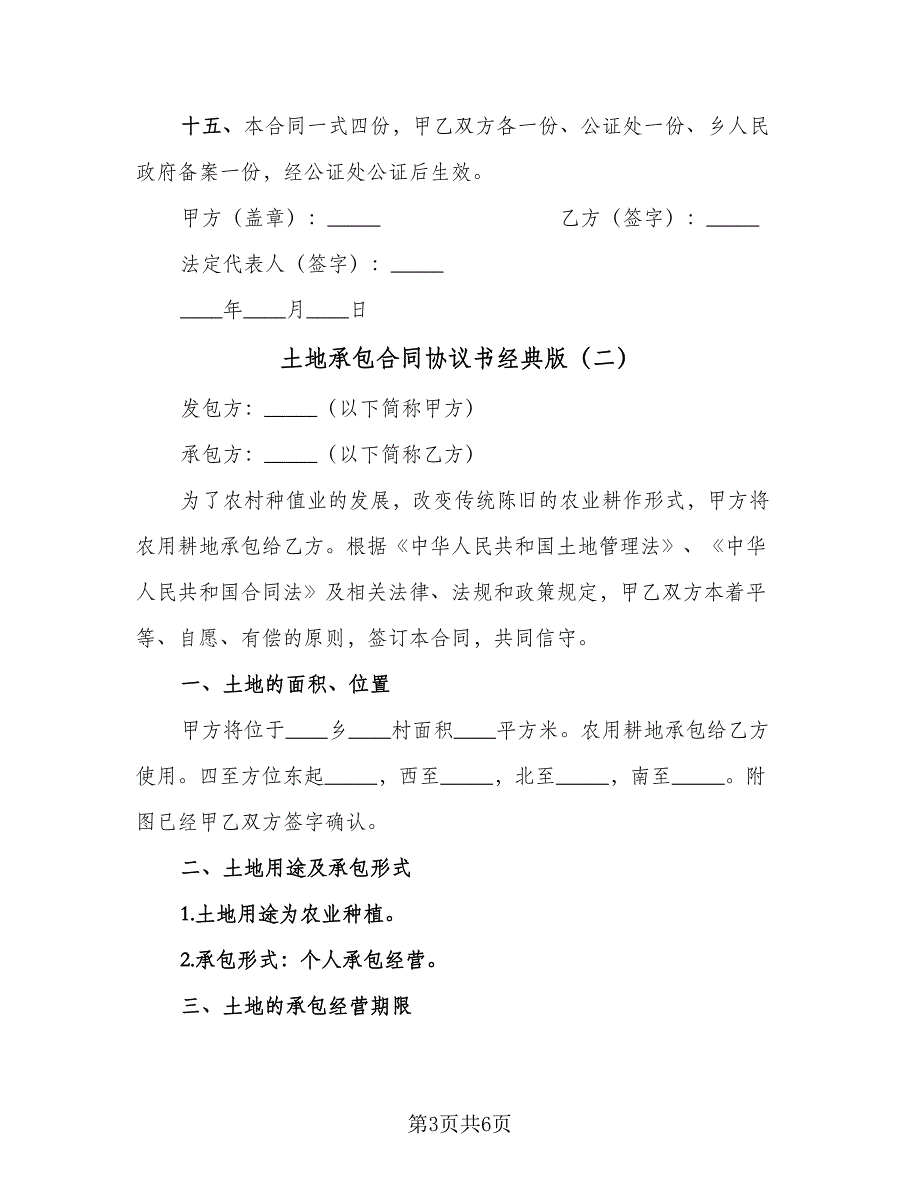 十五、本合同一式四份，甲乙双方各一份、公证处一份、乡人民
政府备案一份，经公证处公证后生效。
甲方（盖章）：_____ 乙方（签字）：_____
法定代表人（签字）：_____
____年____月____日
土地承包合同协议书经典版（二）
发包方：_____（以下简称甲方）
承包方：_____（以下简称乙方）
为了农村种值业的发展，改变传统陈旧的农业耕作形式，甲方将
农用耕地承包给乙方。根据《中华人民共和国土地管理法》、《中华
人民共和国合同法》及相关法律、法规和政策规定，甲乙双方本着平
等、自愿、有偿的原则，签订本合同，共同信守。
一、土地的面积、位置
甲方将位于____乡____村面积____平方米。农用耕地承包给乙方
使用。四至方位东起_____，西至_____，北至_____，南至_____。附
图已经甲乙双方签字确认。
二、土地用途及承包形式
1.土地用途为农业种植。
2.承包形式：个人承包经营。
三、土地的承包经营期限
第3页共6页